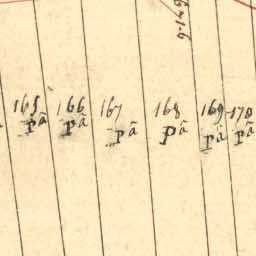 165 166 167 168 169 170
pã pã pã pã pã pã